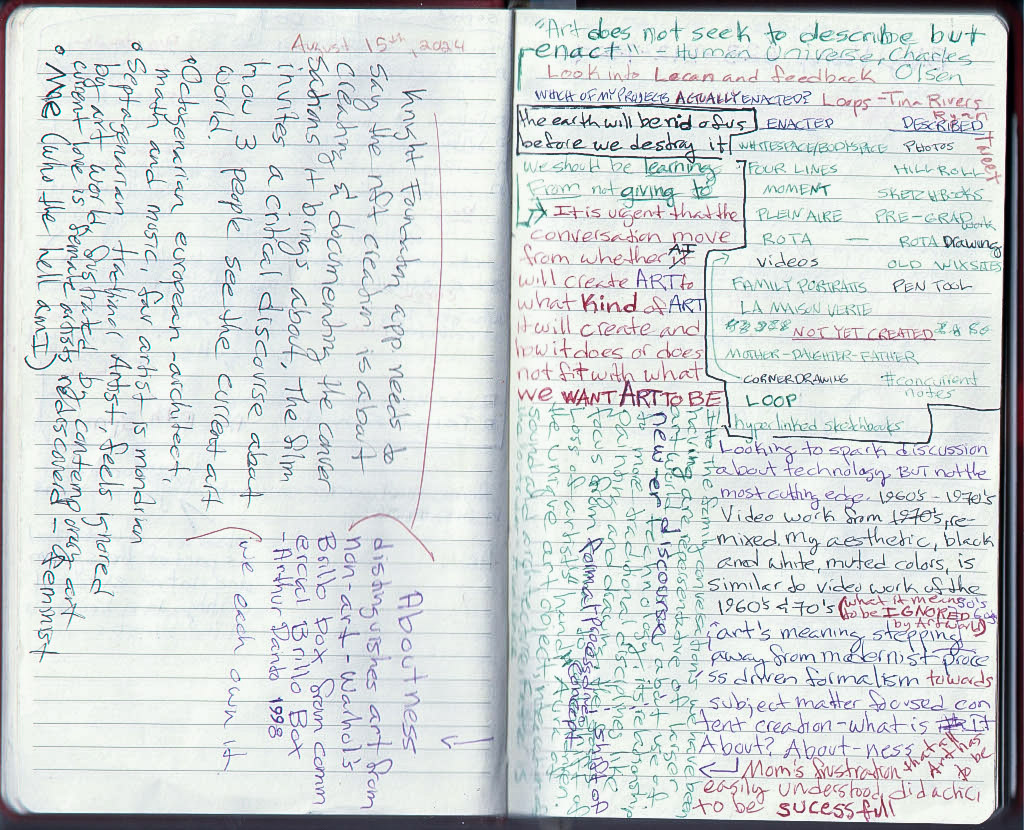 August 15th, 2024
Knight Foundatn app. needs to
say the nft creation is about
Creating & documenting the conver
sations it brings about, the film
invites a critical discourse about
how 3 people see the current art
world.
• Octogenarian european-architect,
math and music, fav artist is mondrian
• Septagenarian trad'ional Artist, feels ignored
by art world, frustrated by contemporary art
current love is female artists rediscovered - feminist
• Me (who the hell am I)
Aboutness
distinguishes art from
non art - Warhol's
Brillo box from comm
ercial Brillo Box
- Arthur Danto 1998
(we each own it
"Art does not seek to describe but
enact" - Human Universe, Charles
Olsen
Look into Lacan and feedback
Loops - Tina Rivers
Ryan
tweet
WHICH OF MY PROJECTS ACTUALLY ENACTED?
the earth will be rid of us
before we destroy it
we should be learning
From not giving to
→ It is urgent that the
conversation move
from whether AI
will create ART to
what Kind of ART
it will create and
how it does or does
not fit with what
we WANT ART TO BE
ENACTED DESCRIBED
WHITESPACE/BODYSPACE PHOTOS
FOUR LINES HILL ROLL
MOMENT SKETCHBOOKS
PLEIN AIRE PRE-GRAD work
ROTA — ROTA Drawing
Videos OLD WIXSITES
FAMILY PORTRAITS PEN TOOL
LA MAISON VERTE
NOT YET CREATED
MOTHER-DAUGHTER-FATHER
CORNER DRAWING #concurrent
notes
LOOP
hyperlinked sketchbooks
Looking to spark discussion
about technology, BUT not the
most cutting edge. 1960's - 1970's
Video work from 1970's, re-
mixed. My aesthetic, black
and white, muted colors, is
similar to video work of the
1960's & 70's (what it means
to be IGNORED
by Art World)
art's meaning stepping
away from modernist proce
ss driven formalism towards
subject matter focused con
tent creation - what is It
About? About-ness
Mom's frustration that
Art has
to be
easily understood, didactic,
to be sucessfull
new-er discourses about